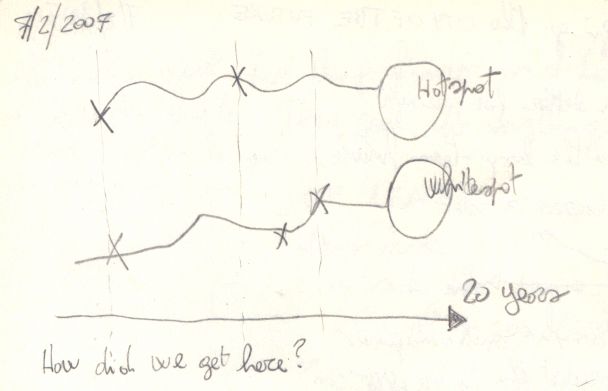 7/2/2007
Hotspot
Whitespot
20 years
How did we get here?